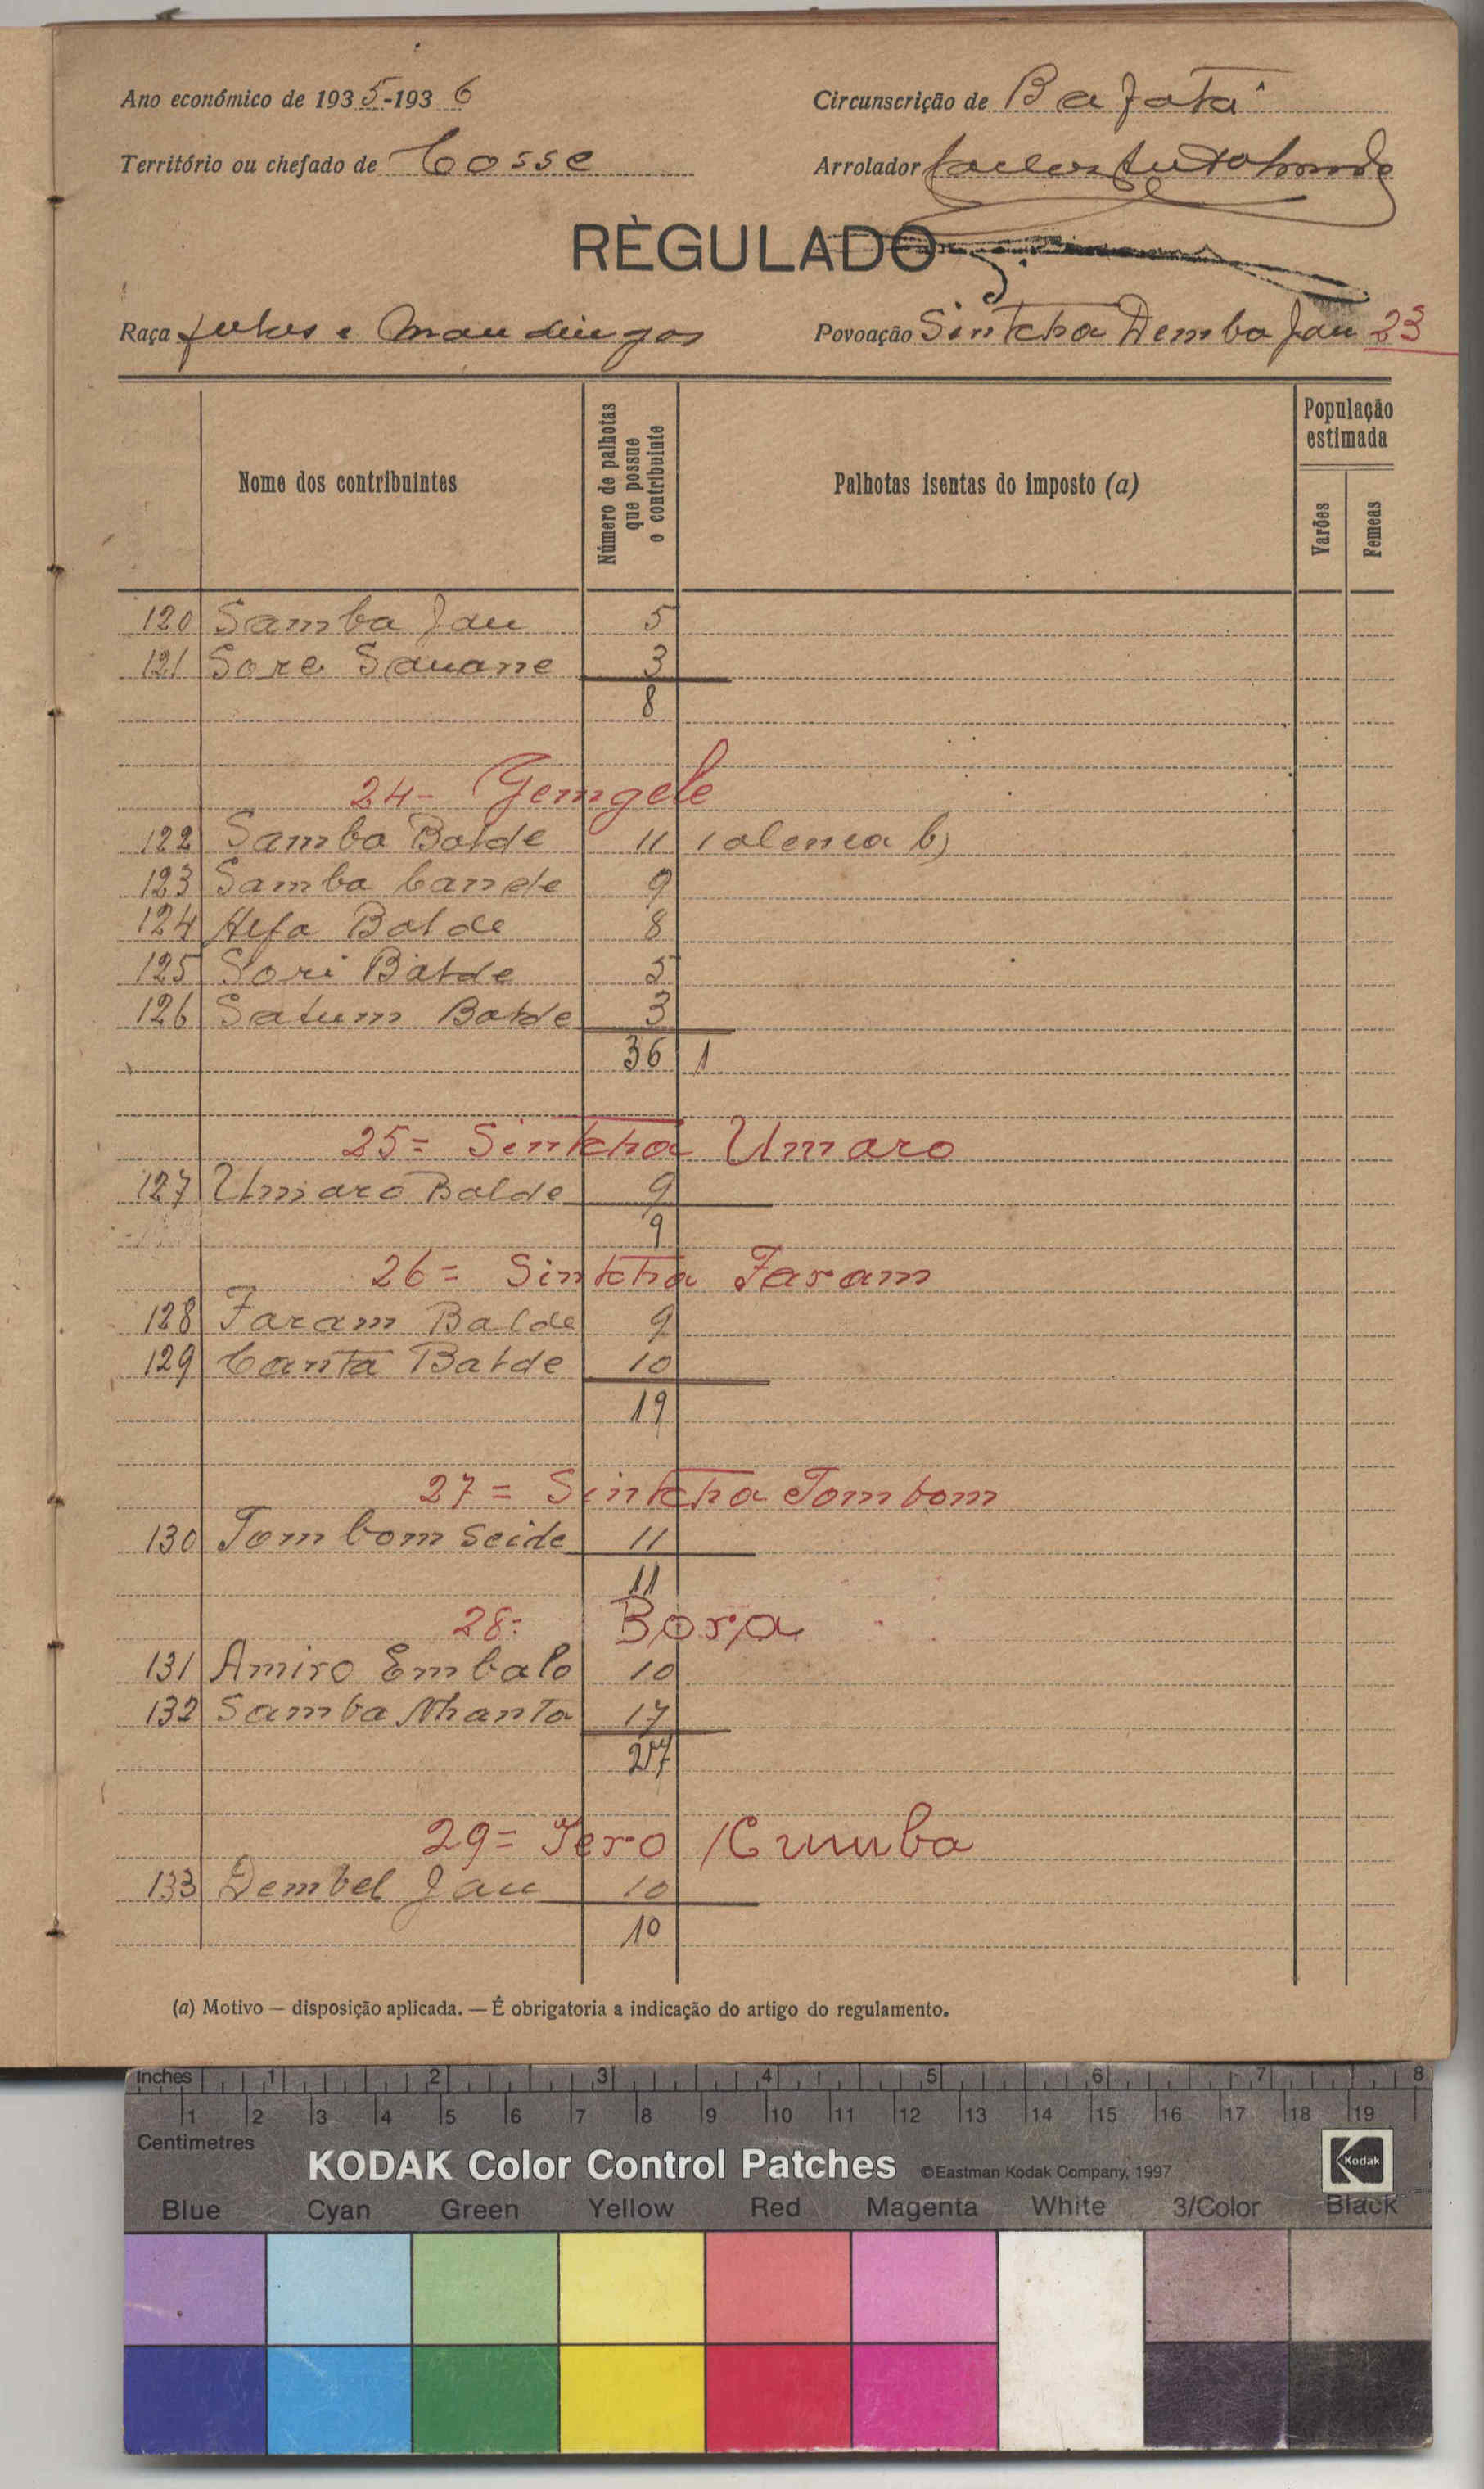 Ano económico de 1935-1936
Circunscrição de Bafatá
Território ou chefado de Cosse
Arrolador
RÈGULADO
Raça fulas e Mandingas
Povoação Sintcha Demba Jau 23
Nome dos contribuintes
Número de palhotas que possue o contribuinte
Palhotas isentas do imposto (a)
População estimada
Varões
Femeas
120 Samba Jau 5
121 Sore Sauane 3
8
24- Gemgele
122 Samba Balde 11 1 alenea b)
123 Samba Cande 9
124 Alfa Balde 8
125 Sori Balde 5
126 Satum Balde 3
36 1
25= Sintcha Umaro
127 Umaro Balde 9
9
26= Sintcha Faram
128 Faram Balde 9
129 Canta Balde 10
19
27= Sintcha Tombom
130 Tombom Seide 11
11
28= Bora
131 Amiro Embalo 10
132 Samba Nhanta 17
27
29= Tero /Cumba
133 Dembel Jau 10
10
(a) Motivo — disposição aplicada. — É obrigatoria a indicação do artigo do regulamento.
Inches 1 2 3 4 5 6 7 8
1 2 3 4 5 6 7 8 9 10 11 12 13 14 15 16 17 18 19
Centimetres
KODAK Color Control Patches ©Eastman Kodak Company, 1997 Kodak
Blue Cyan Green Yellow Red Magenta White 3/Color Black